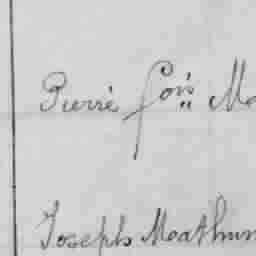 Pierre fois Ma
Joseph Mathurin